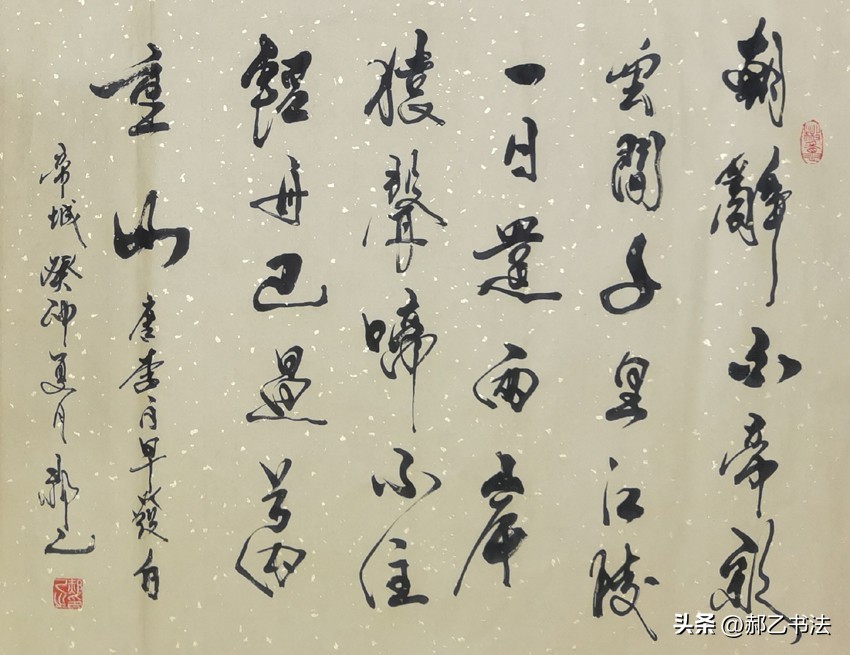 朝辭白帝彩
雲間千里江陵
一日還兩岸
猿聲啼不住
輕舟已過萬
重山 唐李白早發白
帝城 癸卯夏月 郝乙
头条 @郝乙书法